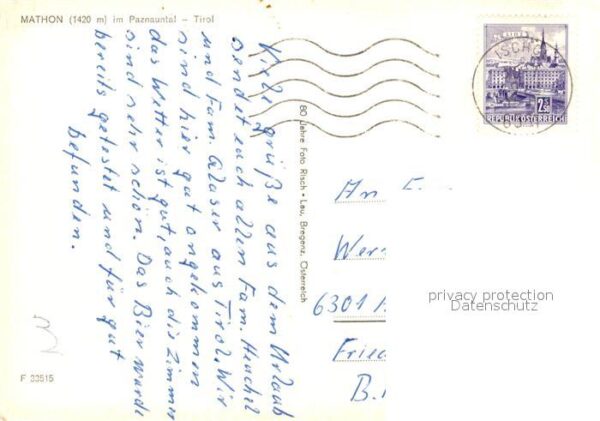 MATHON (1420 m) im Paznauntal – Tirol
Viele grüße aus dem Urlaub
sendet euch allen Fam. Henchel
und Fam. Glaser aus Tirol. Wir
sind hier gut angekommen
das Wetter ist gut, auch die Zimmer
sind sehr schön. Das Bier wurde
bereits getestet und für gut
befunden.
F 23515
80 Jahre Foto Risch • Lau, Bregenz, Österreich
ISCH
2.50
REPUBLIK ÖSTERREICH
An F
Wer
6301
Fried
B.
privacy protection
Datenschutz